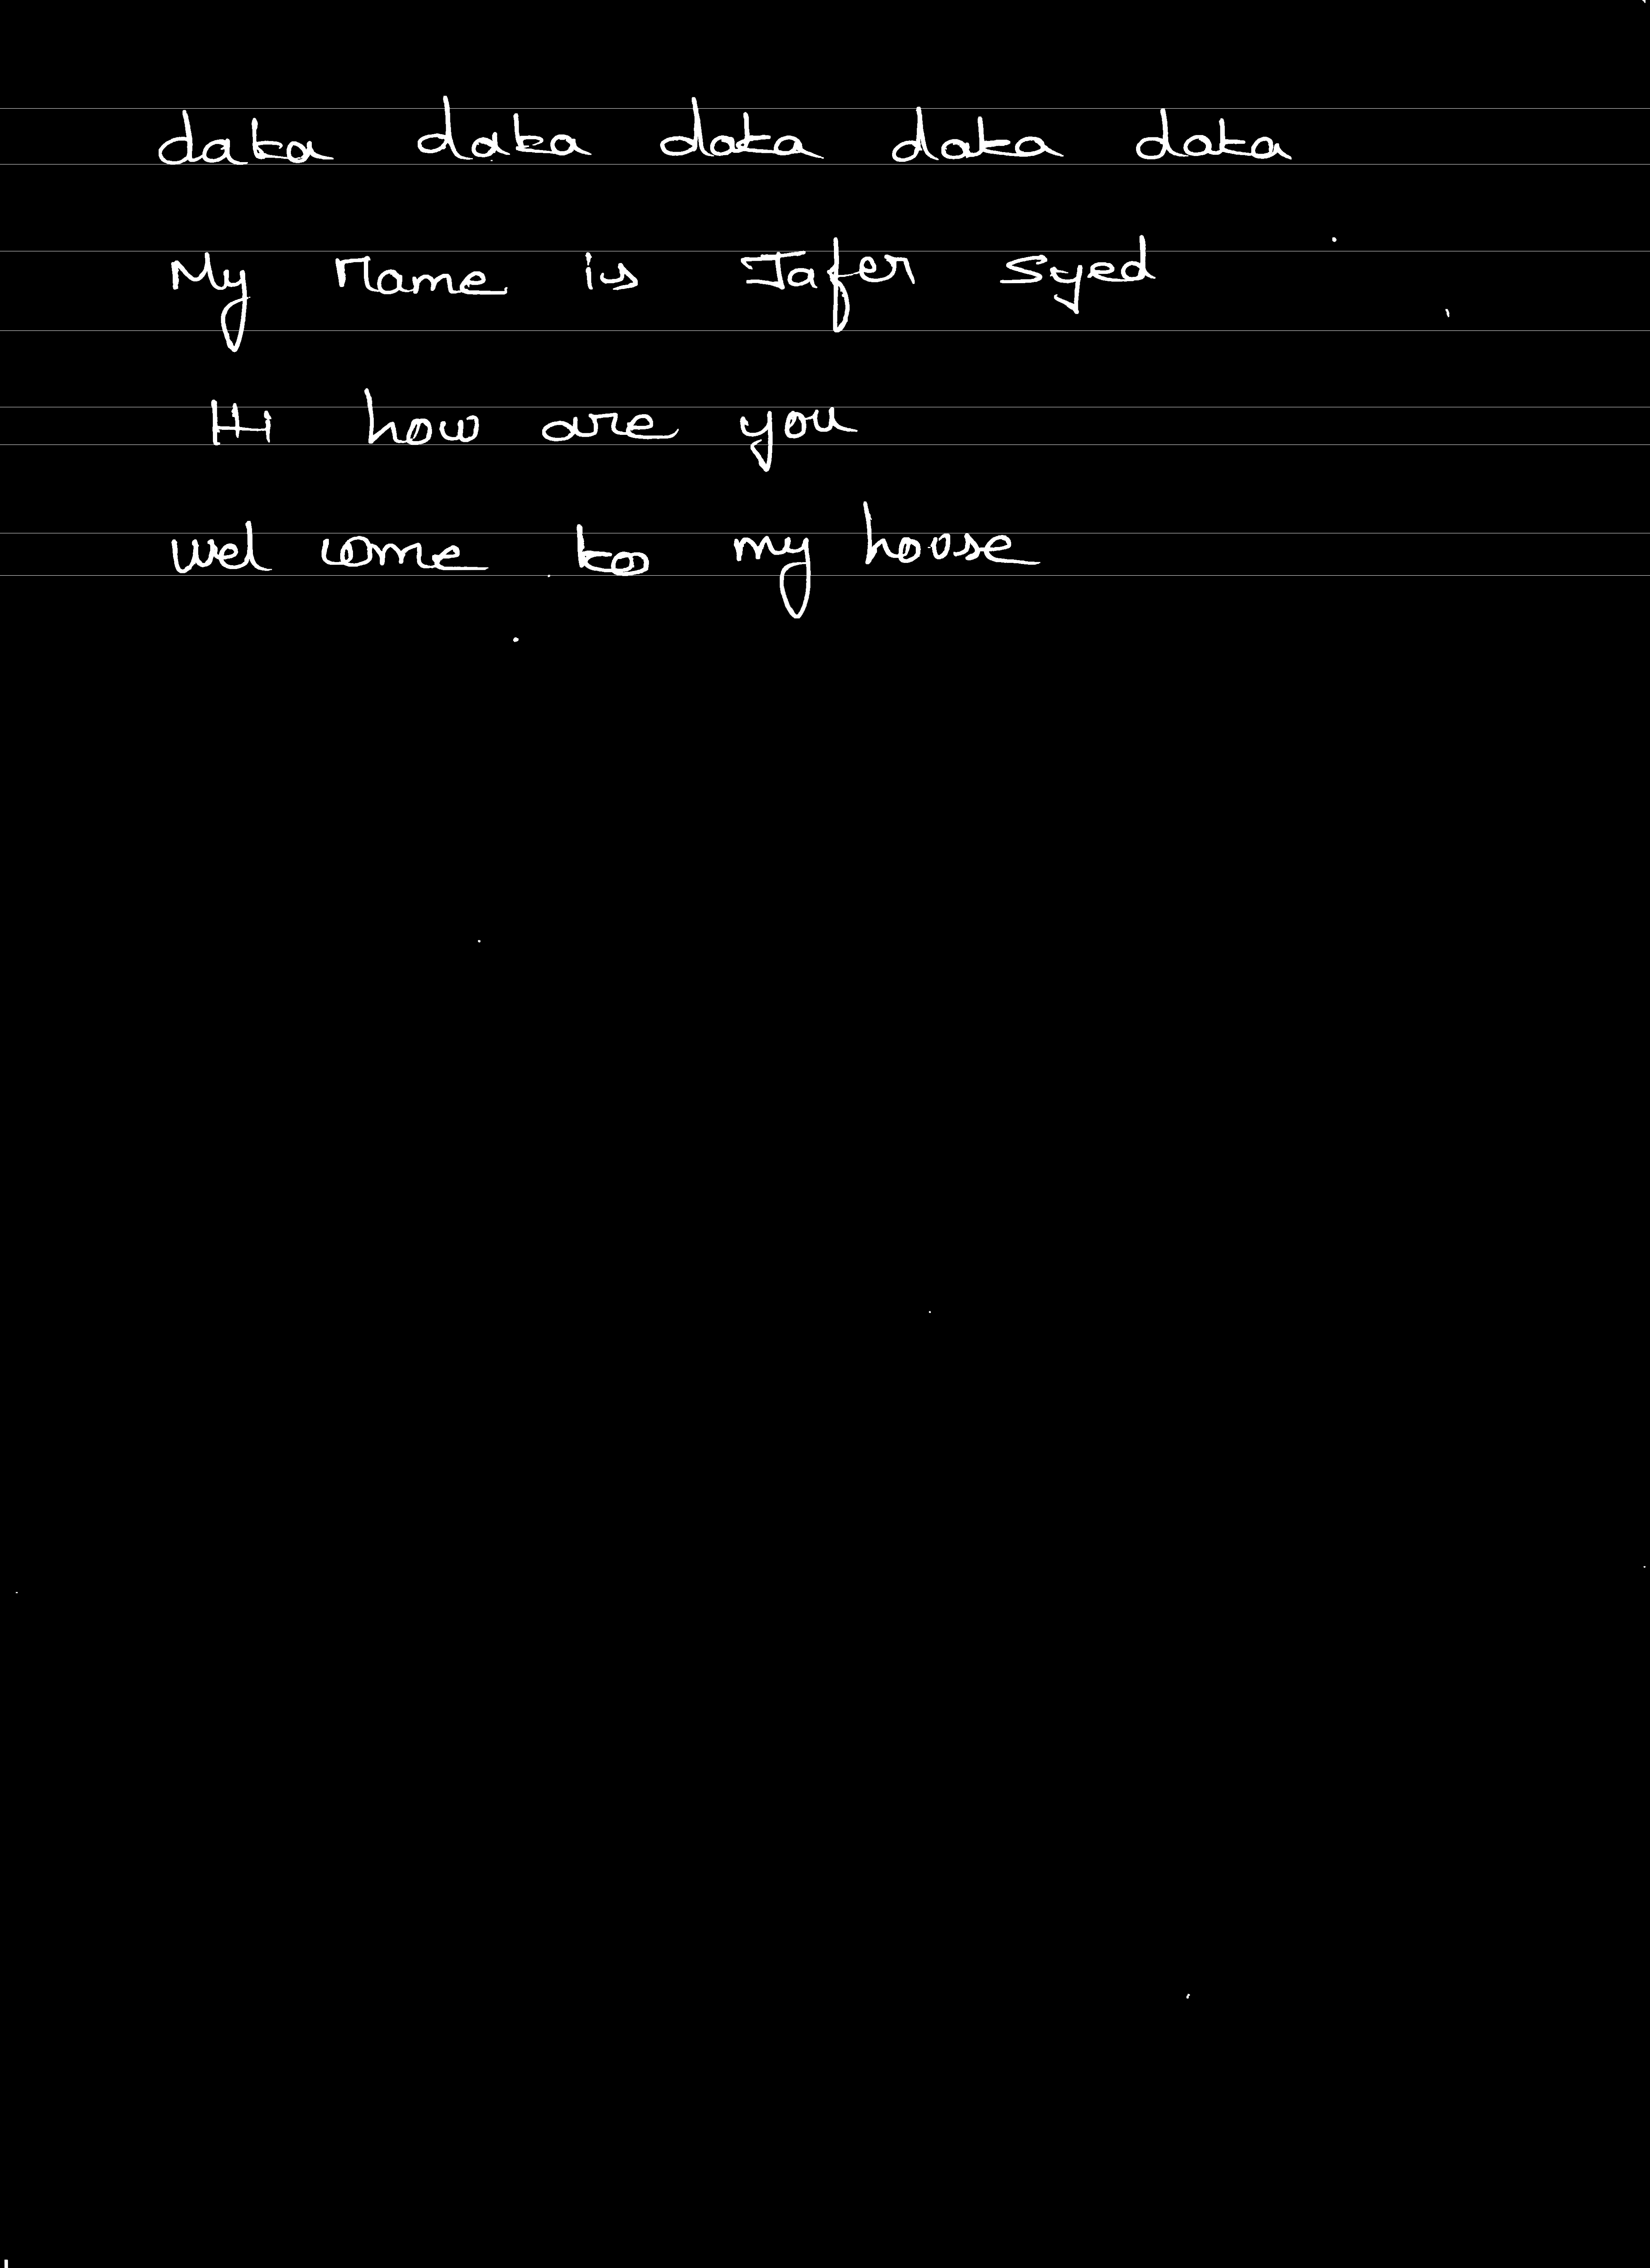 data data data data data
My name is Jafer Syed
Hi how are you
wel come to my house